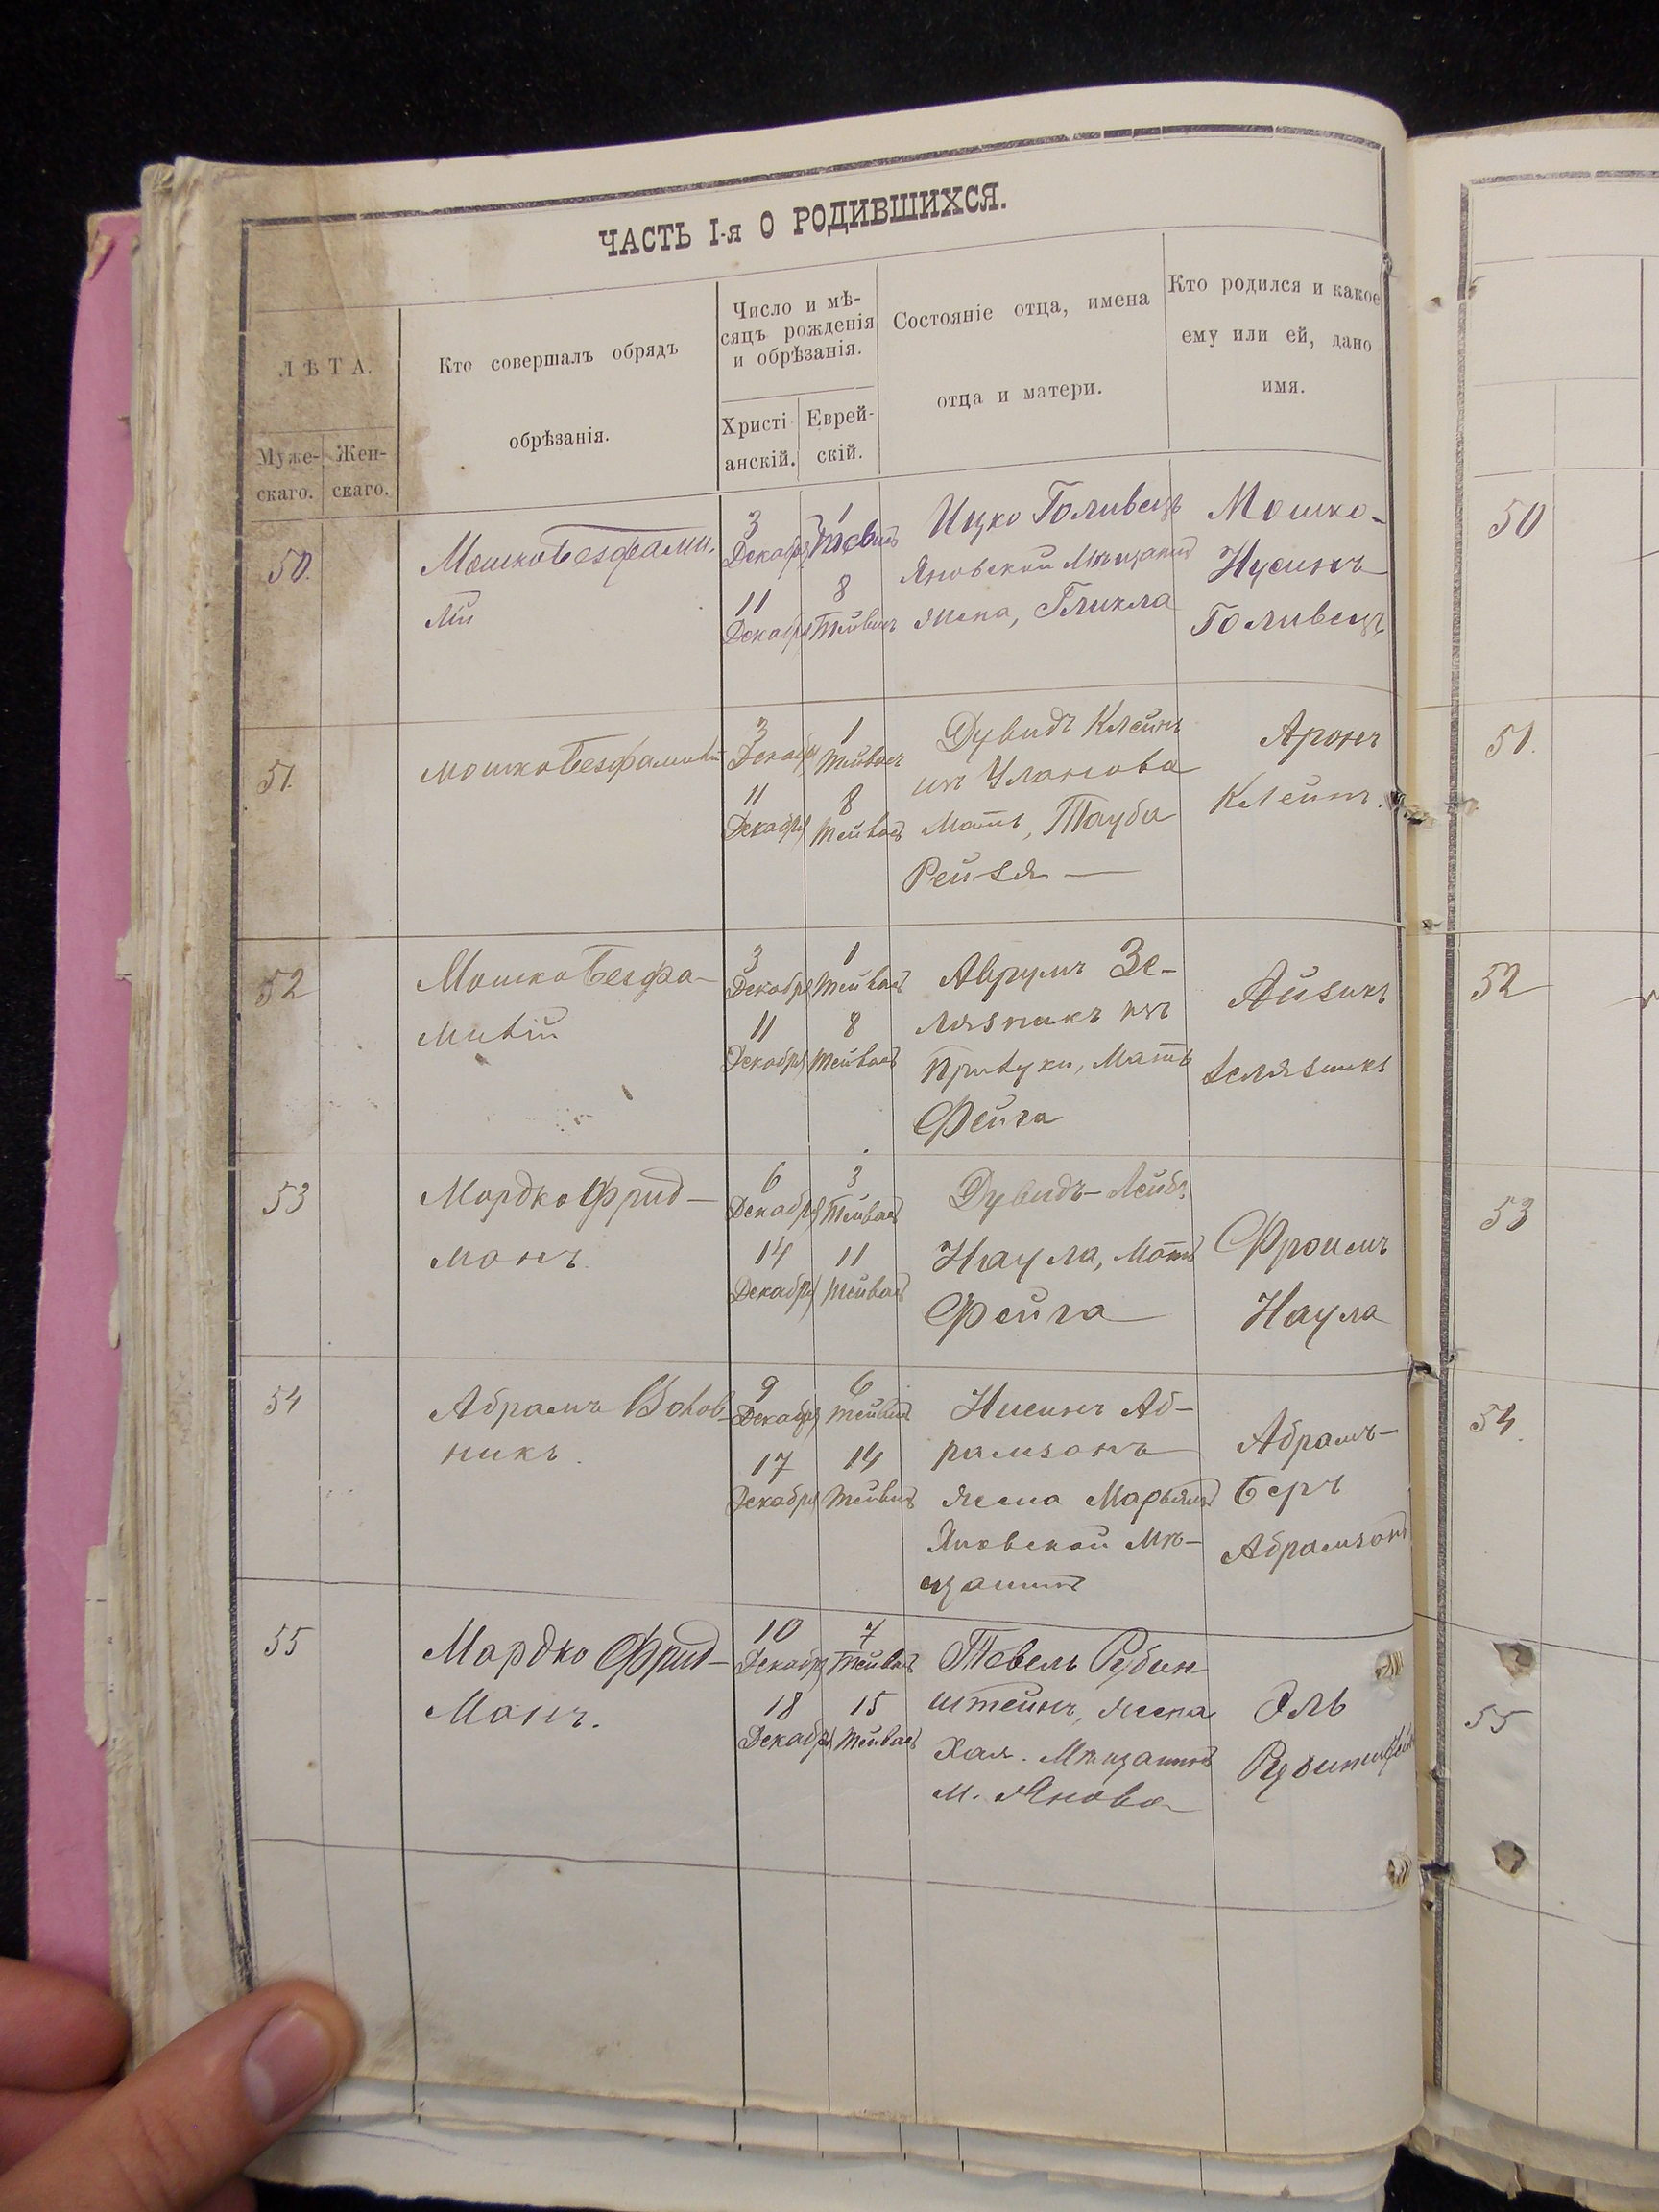 ЧАСТЬ I-я О РОДИВШИХСЯ.
ЛѢТА.
Муже-
скаго.
Жен-
скаго.
Кто совершалъ обрядъ
обрѣзанія.
Число и мѣ-
сяцъ рожденія
и обрѣзанія.
Христі
анскій.
Еврей-
скій.
Состояніе отца, имена
отца и матери.
Кто родился и какое
ему или ей, дано
имя.
50.
Мошко Безфами-
лій
3
Декабр
11
Декабр
1
8
Тейвасъ
Ицко Голивецъ
Яновской Мѣщанинъ
жена, Гликла
Мошко-
Нусинъ
Голивецъ
50
51.
Мошко Безфамилій
3
Декабр
11
Декабря
1
Тейвасъ
8
Тейвасъ
Дувидъ Клейнъ
изъ Уланова
Мать, Тауба
Рейзя —
Аронъ
Клейнъ.
51.
52
Мошко Безфа-
милій
3
Декабря
11
Декабря
1
Тейвасъ
8
Тейвасъ
Аврумъ Зе-
лязникъ изъ
Прилуки, Мать
Фейга
Айзикъ
52
53
Мордко Фрид-
манъ.
6
Декабря
14
Декабря
3
Тейвасъ
11
Тейвасъ
Дувидъ-Лейбъ
Наула, Мать
Фейга
Фроимъ
Наула
53
54
Абрамъ
никъ.
9
Декабря
17
Декабря
6
Тейвасъ
14
Тейвасъ
Нисинъ Аб-
рамзонъ
жена Марьямъ
Яновской Мѣ-
щанинъ
Абрамъ-
Беръ
Абрамзонъ
54
55
Мордко Фрид-
Манъ.
10
Декабря
18
Декабря
7
Тейвасъ
15
Тейвасъ
Товель Рубин-
штейнъ, жена
Хая. Мѣщанинъ
м. Янова
Эль
Рубинштейнъ
55